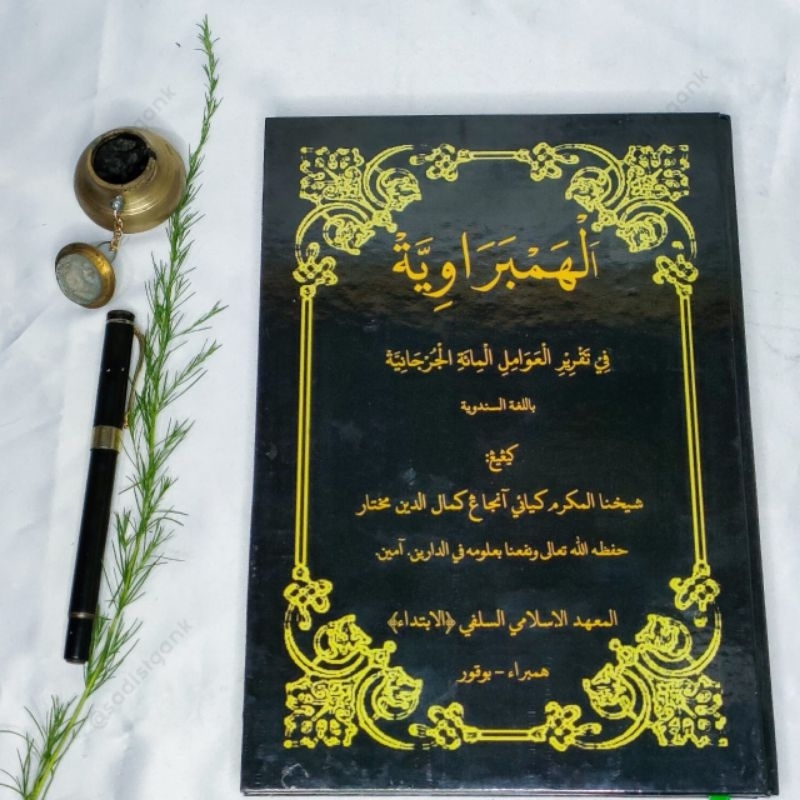 اَلْهَمْبَرَاوِيَّةْ
فِيْ تَقْرِيْرِ الْعَوَامِلِ الْمِائَةِ الْجُرْجَانِيَّةْ
باللغة السندوية
كيڠيڠ:
شيخنا المكرم كيائي آنجاڠ كمال الدين مختار
حفظه الله تعالى ونفعنا بعلومه في الدارين. آمين.
المعهد الاسلامي السلفي ﴿الابتداء﴾
همبراء - بوقور
@sadistgank